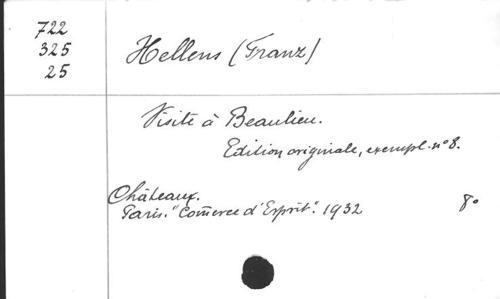 722
325
25
Hellens (Franz)
Visite à Beaulieu.
Edition originale, exempl. nº 8.
Châteaux.
Paris. "Com̄erce d'Esprit". 1932 8º